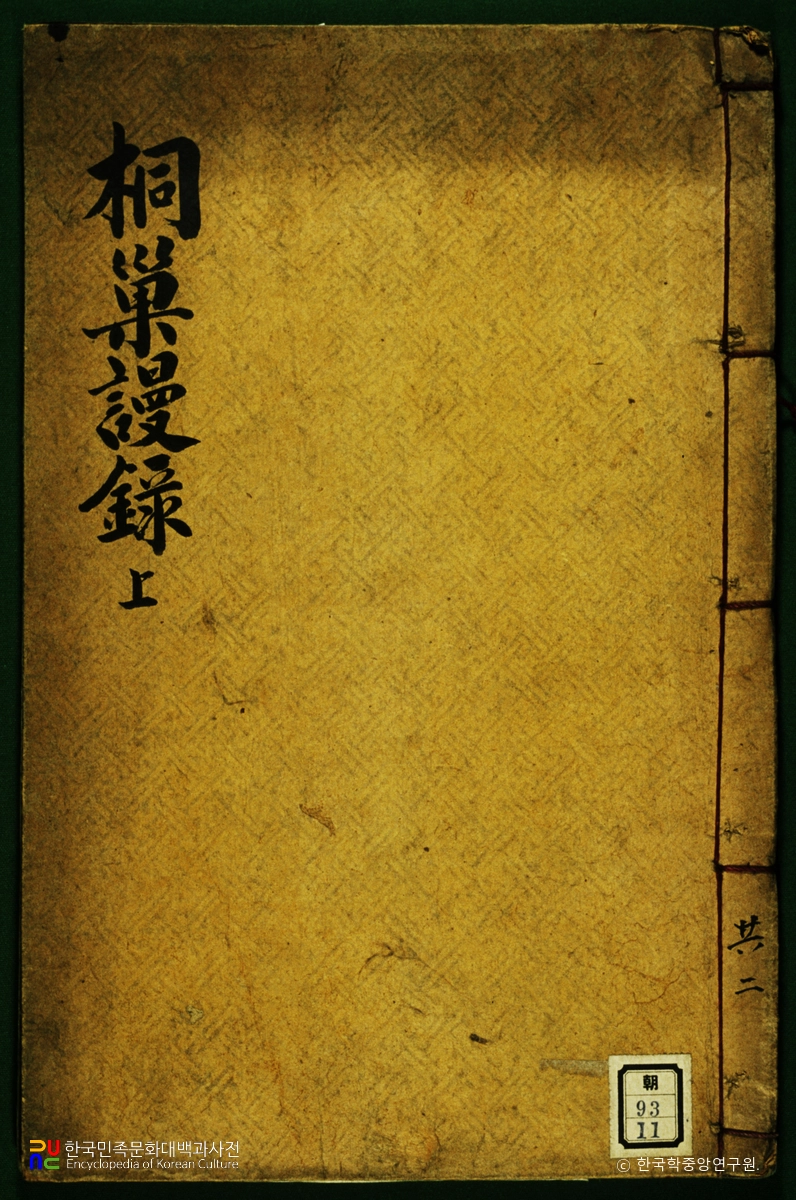 桐巢謾錄 上
共二
朝
93
11
한국민족문화대백과사전
Encyclopedia of Korean Culture
© 한국학중앙연구원.